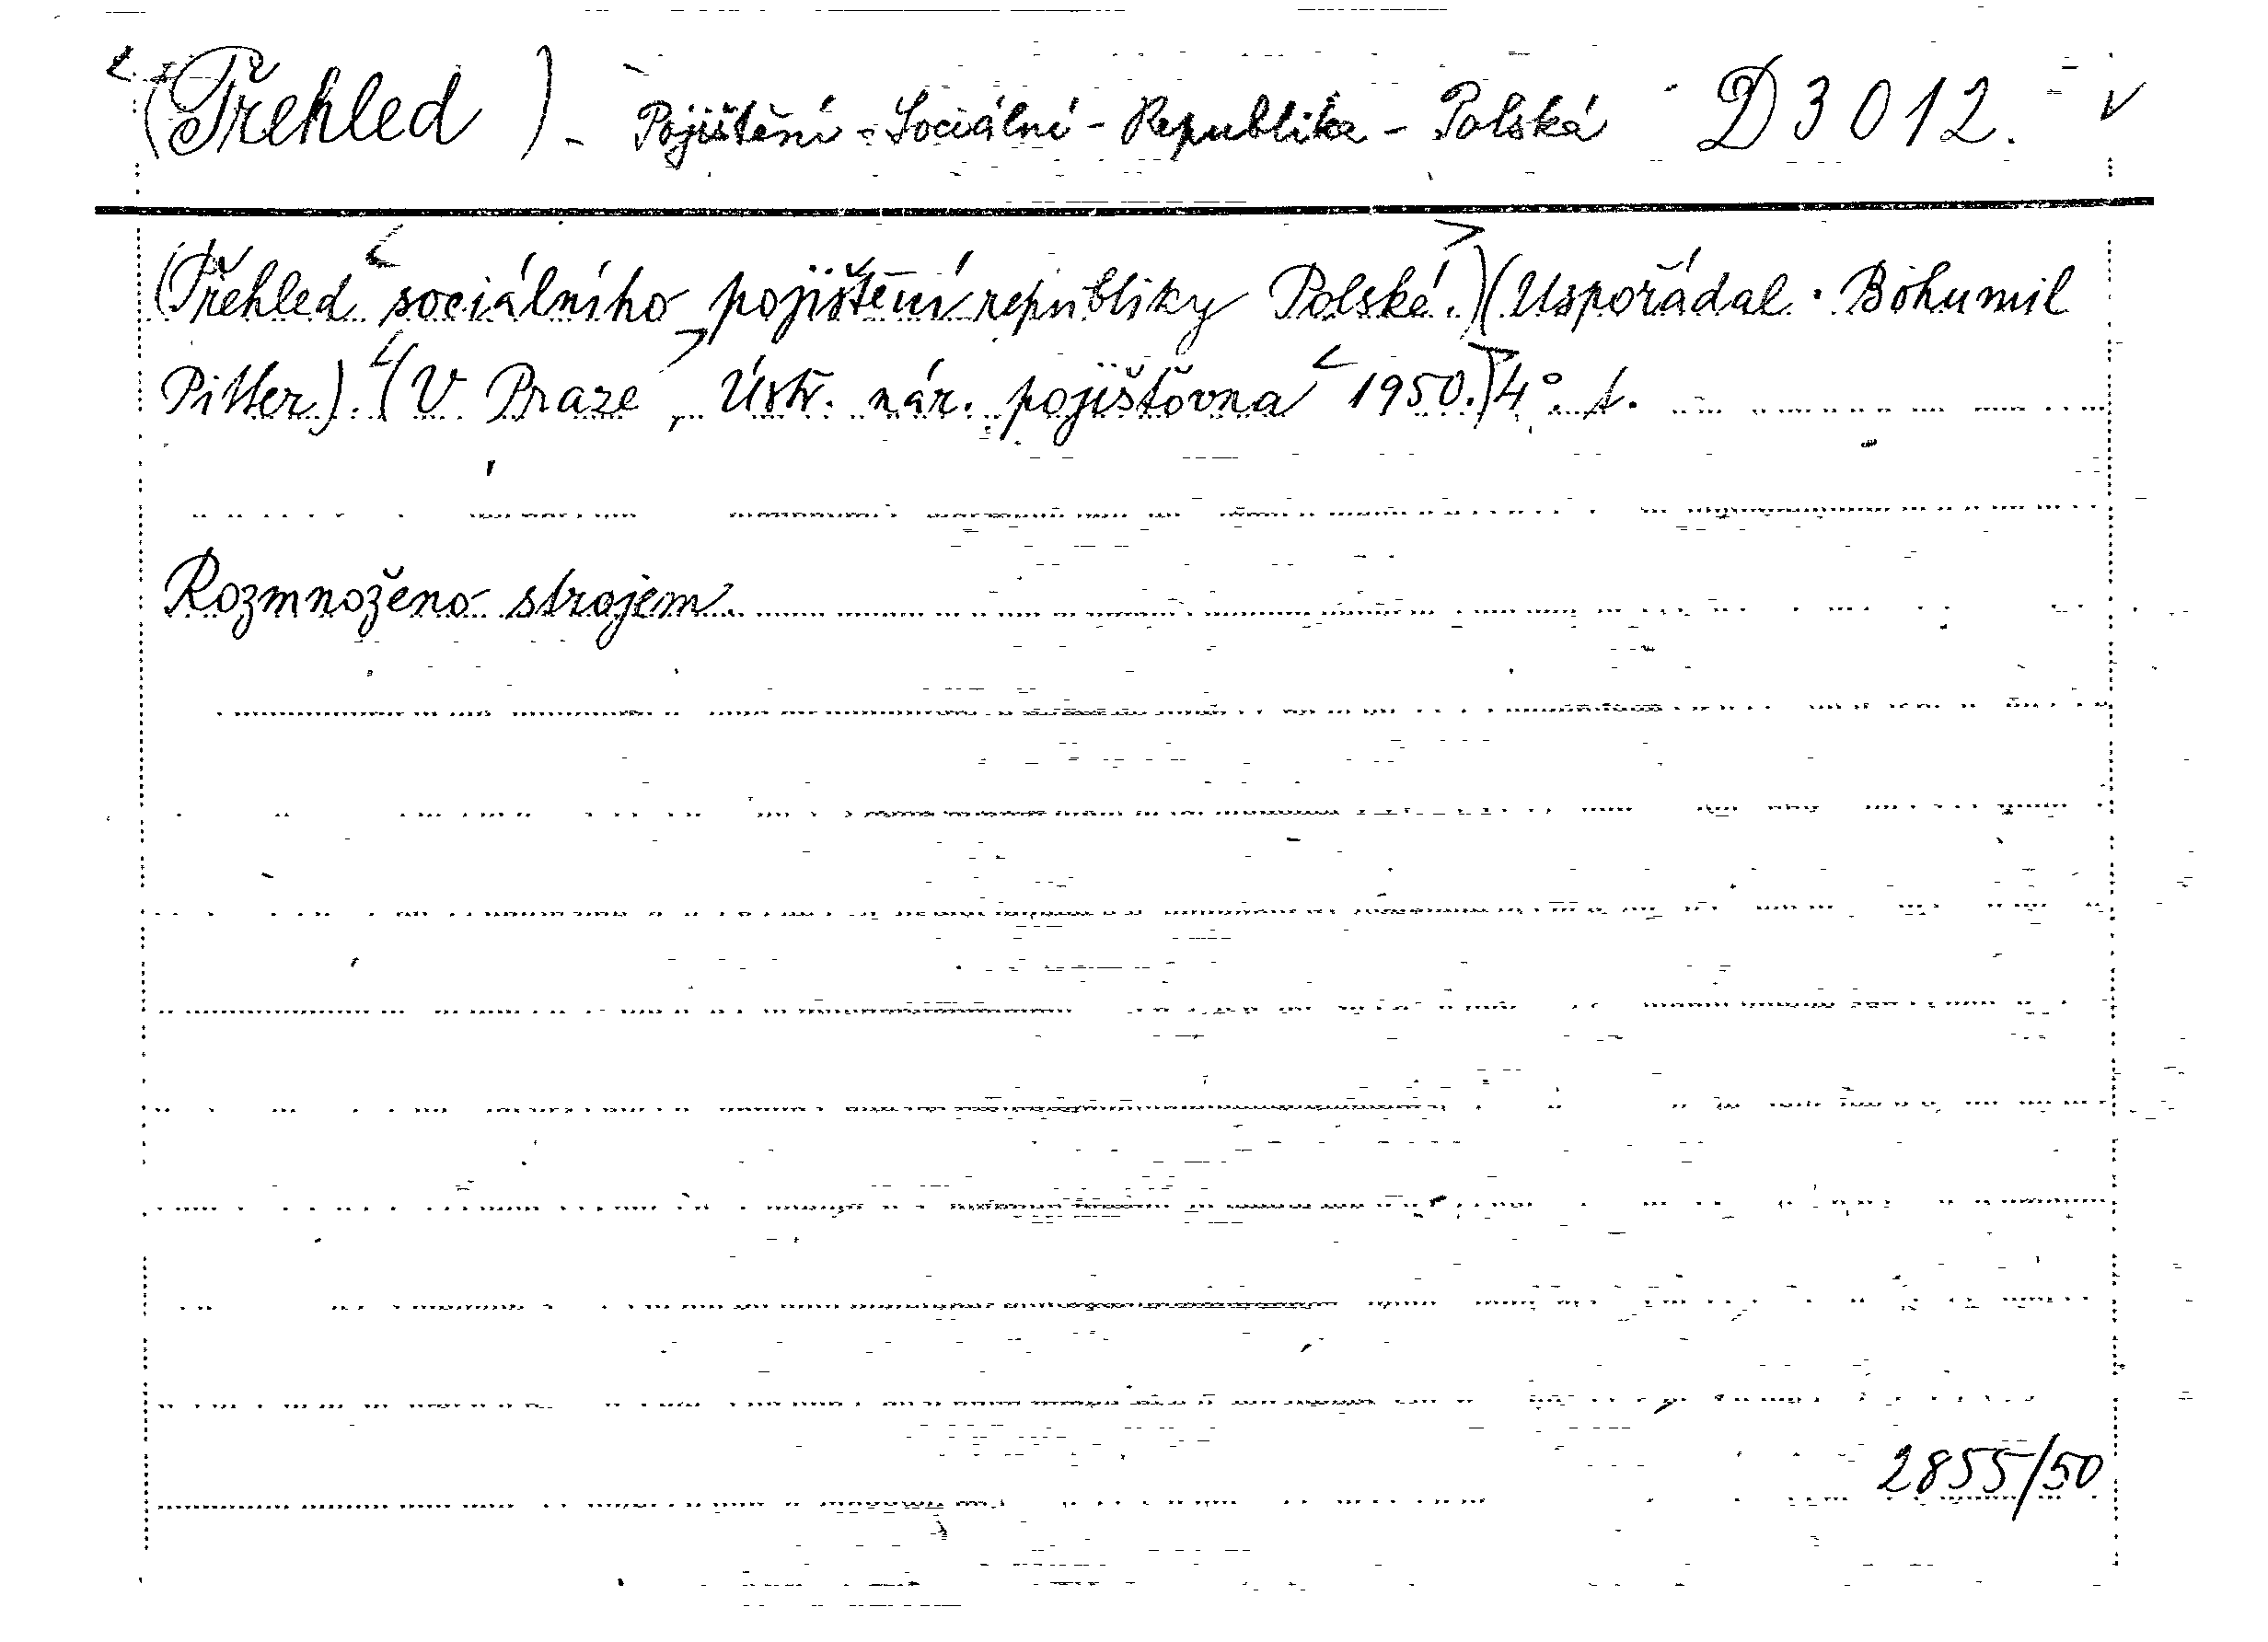 (Přehled) - Pojištění - Sociální - Republika - Polská D 3012.
(Přehled sociálního pojištění republiky Polské.)(Uspořádal Bohumil
Pitter).(V Praze, Ústř. nár. pojišťovna 1950.)4°.
Rozmnoženo strojem.
2855/50